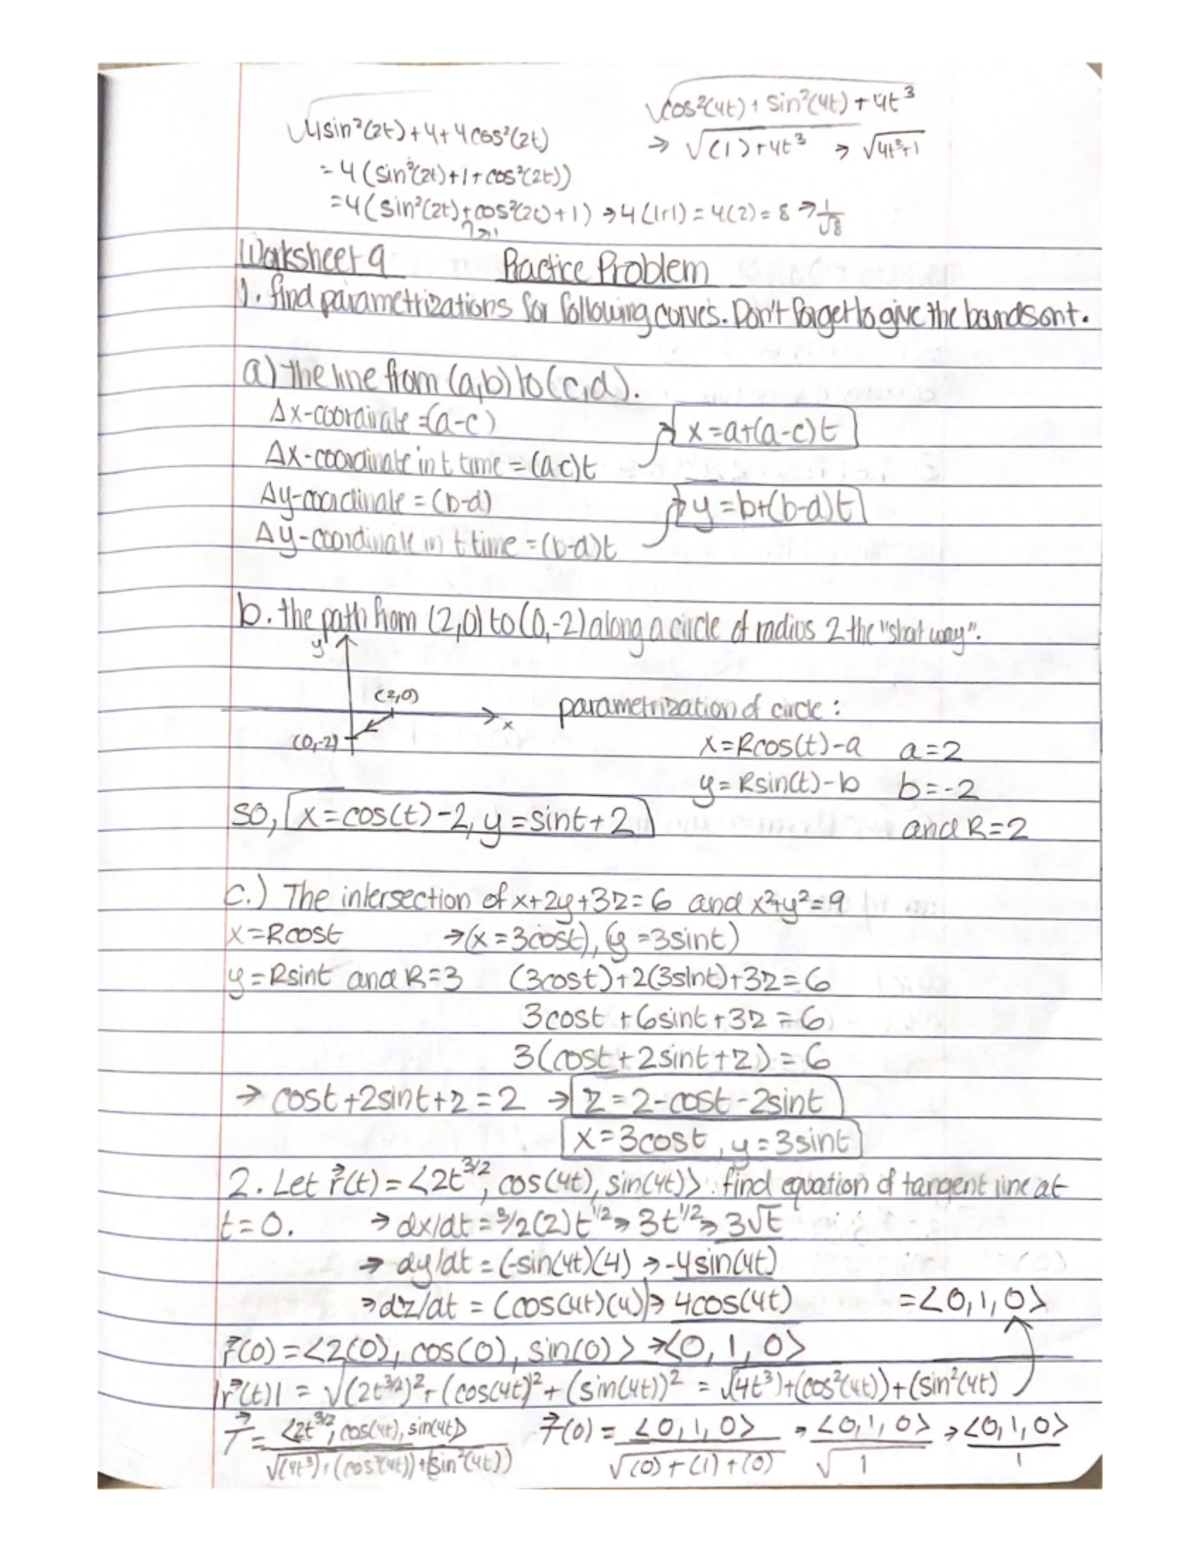 √4sin²(2t)+4+4cos²(2t)
= 4(sin²(2t)+1+cos²(2t))
=4(sin²(2t)+cos²(2t)+1) → 4(1+1) = 4(2) = 8 → 1/√8
√cos²(4t)+sin²(4t)+4t³
→ √(1)+4t³ → √4t³+1
Worksheet 9 Practice Problem
1. find parametrizations for following curves. Don't forget to give the bounds on t.
a) the line from (a,b) to (c,d).
Δx-coordinate =(a-c)
x=a+(a-c)t
Δx-coordinate in t time = (a-c)t
Δy-coordinate = (b-d)
y=b+(b-d)t
Δy-coordinate in t time =(b-d)t
b. the path from (2,0) to (0,-2) along a circle of radius 2 the "short way".
y
(2,0)
x
(0,-2)
parametrization of circle:
x=Rcos(t)-a a=2
y=Rsin(t)-b b=-2
and R=2
so, x=cos(t)-2, y=sint+2
c.) The intersection of x+2y+3z=6 and x²+y²=9
x=Rcost →(x=3cost), (y=3sint)
y=Rsint and R=3 (3cost)+2(3sint)+3z=6
3cost+6sint+3z=6
3(cost+2sint+z)=6
→ cost+2sint+z=2 → z=2-cost-2sint
x=3cost, y=3sint
2. Let r⃗(t)=<2t^3/2, cos(4t), sin(4t)>. find equation of tangent line at
t=0. → dx/dt = 3/2(2)t^1/2 → 3t^1/2 → 3√t
→ dy/dt = (-sin(4t)(4) → -4sin(4t)
→ dz/dt = (cos(4t)(4) → 4cos(4t) =<0,1,0>
r⃗(0)=<2(0), cos(0), sin(0)> → <0,1,0>
|r⃗(t)| = √(2t^3/2)²+(cos(4t)²+(sin(4t))² = √(4t³)+(cos²(4t))+(sin²(4t)
T⃗ = <2t^3/2, cos(4t), sin(4t)> / √(4t³)+(cos²(4t))+(sin²(4t)) T⃗(0) = <0,1,0> / √(0)+(1)+(0) → <0,1,0> / √1 → <0,1,0> / 1